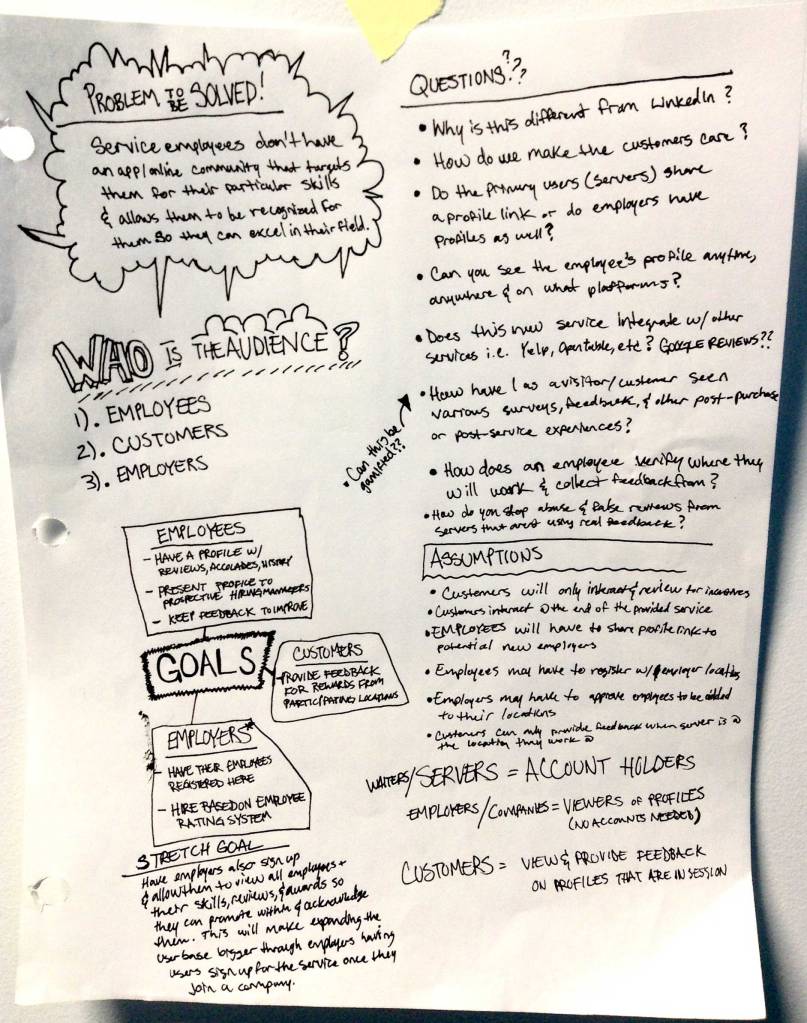 PROBLEM TO BE SOLVED!
Service employees don't have
an app/online community that targets
them for their particular skills
& allows them to be recognized for
them so they can excel in their field.
WHO IS THE AUDIENCE?
1). EMPLOYEES
2). CUSTOMERS
3). EMPLOYERS
EMPLOYEES
- HAVE A PROFILE W/
REVIEWS, ACCOLADES, HISTORY
- PRESENT PROFILE TO
PROSPECTIVE HIRING MANAGERS
- KEEP FEEDBACK TO IMPROVE
GOALS
CUSTOMERS
- PROVIDE FEEDBACK
FOR REWARDS FROM
PARTICIPATING LOCATIONS
EMPLOYERS*
- HAVE THEIR EMPLOYEES
REGISTERED HERE
- HIRE BASED ON EMPLOYEE
RATING SYSTEM
STRETCH GOAL
Have employers also sign up
& allow them to view all employees +
their skills, reviews, & awards so
they can promote within & acknowledge
them. This will make expanding the
user base bigger through employers having
users sign up for the service once they
join a company.
QUESTIONS???
• Why is this different from LinkedIn?
• How do we make the customers care?
• Do the primary users (servers) share
a profile link or do employers have
profiles as well?
• Can you see the employee's profile anytime,
anywhere & on what platforms?
• Does this new service integrate w/ other
services i.e. Yelp, Opentable, etc? GOOGLE REVIEWS??
• How have I as a visitor/customer seen
various surveys, feedback, & other post-purchase
or post-service experiences?
• Can this be
gamified??
• How does an employee verify where they
will work & collect feedback from?
• How do you stop abuse & false reviews from
servers that aren't using real feedback?
ASSUMPTIONS
• Customers will only interact & review for incentives
• Customers interact @ the end of the provided service
• EMPLOYEES will have to share profile link to
potential new employers
• Employees may have to register w/ employer locations
• Employers may have to approve employees to be added
to their locations
• Customers can only provide feedback when server is @
the location they work @
WAITERS/SERVERS = ACCOUNT HOLDERS
EMPLOYERS/COMPANIES = VIEWERS OF PROFILES
(NO ACCOUNTS NEEDED)
CUSTOMERS = VIEW & PROVIDE FEEDBACK
ON PROFILES THAT ARE IN SESSION